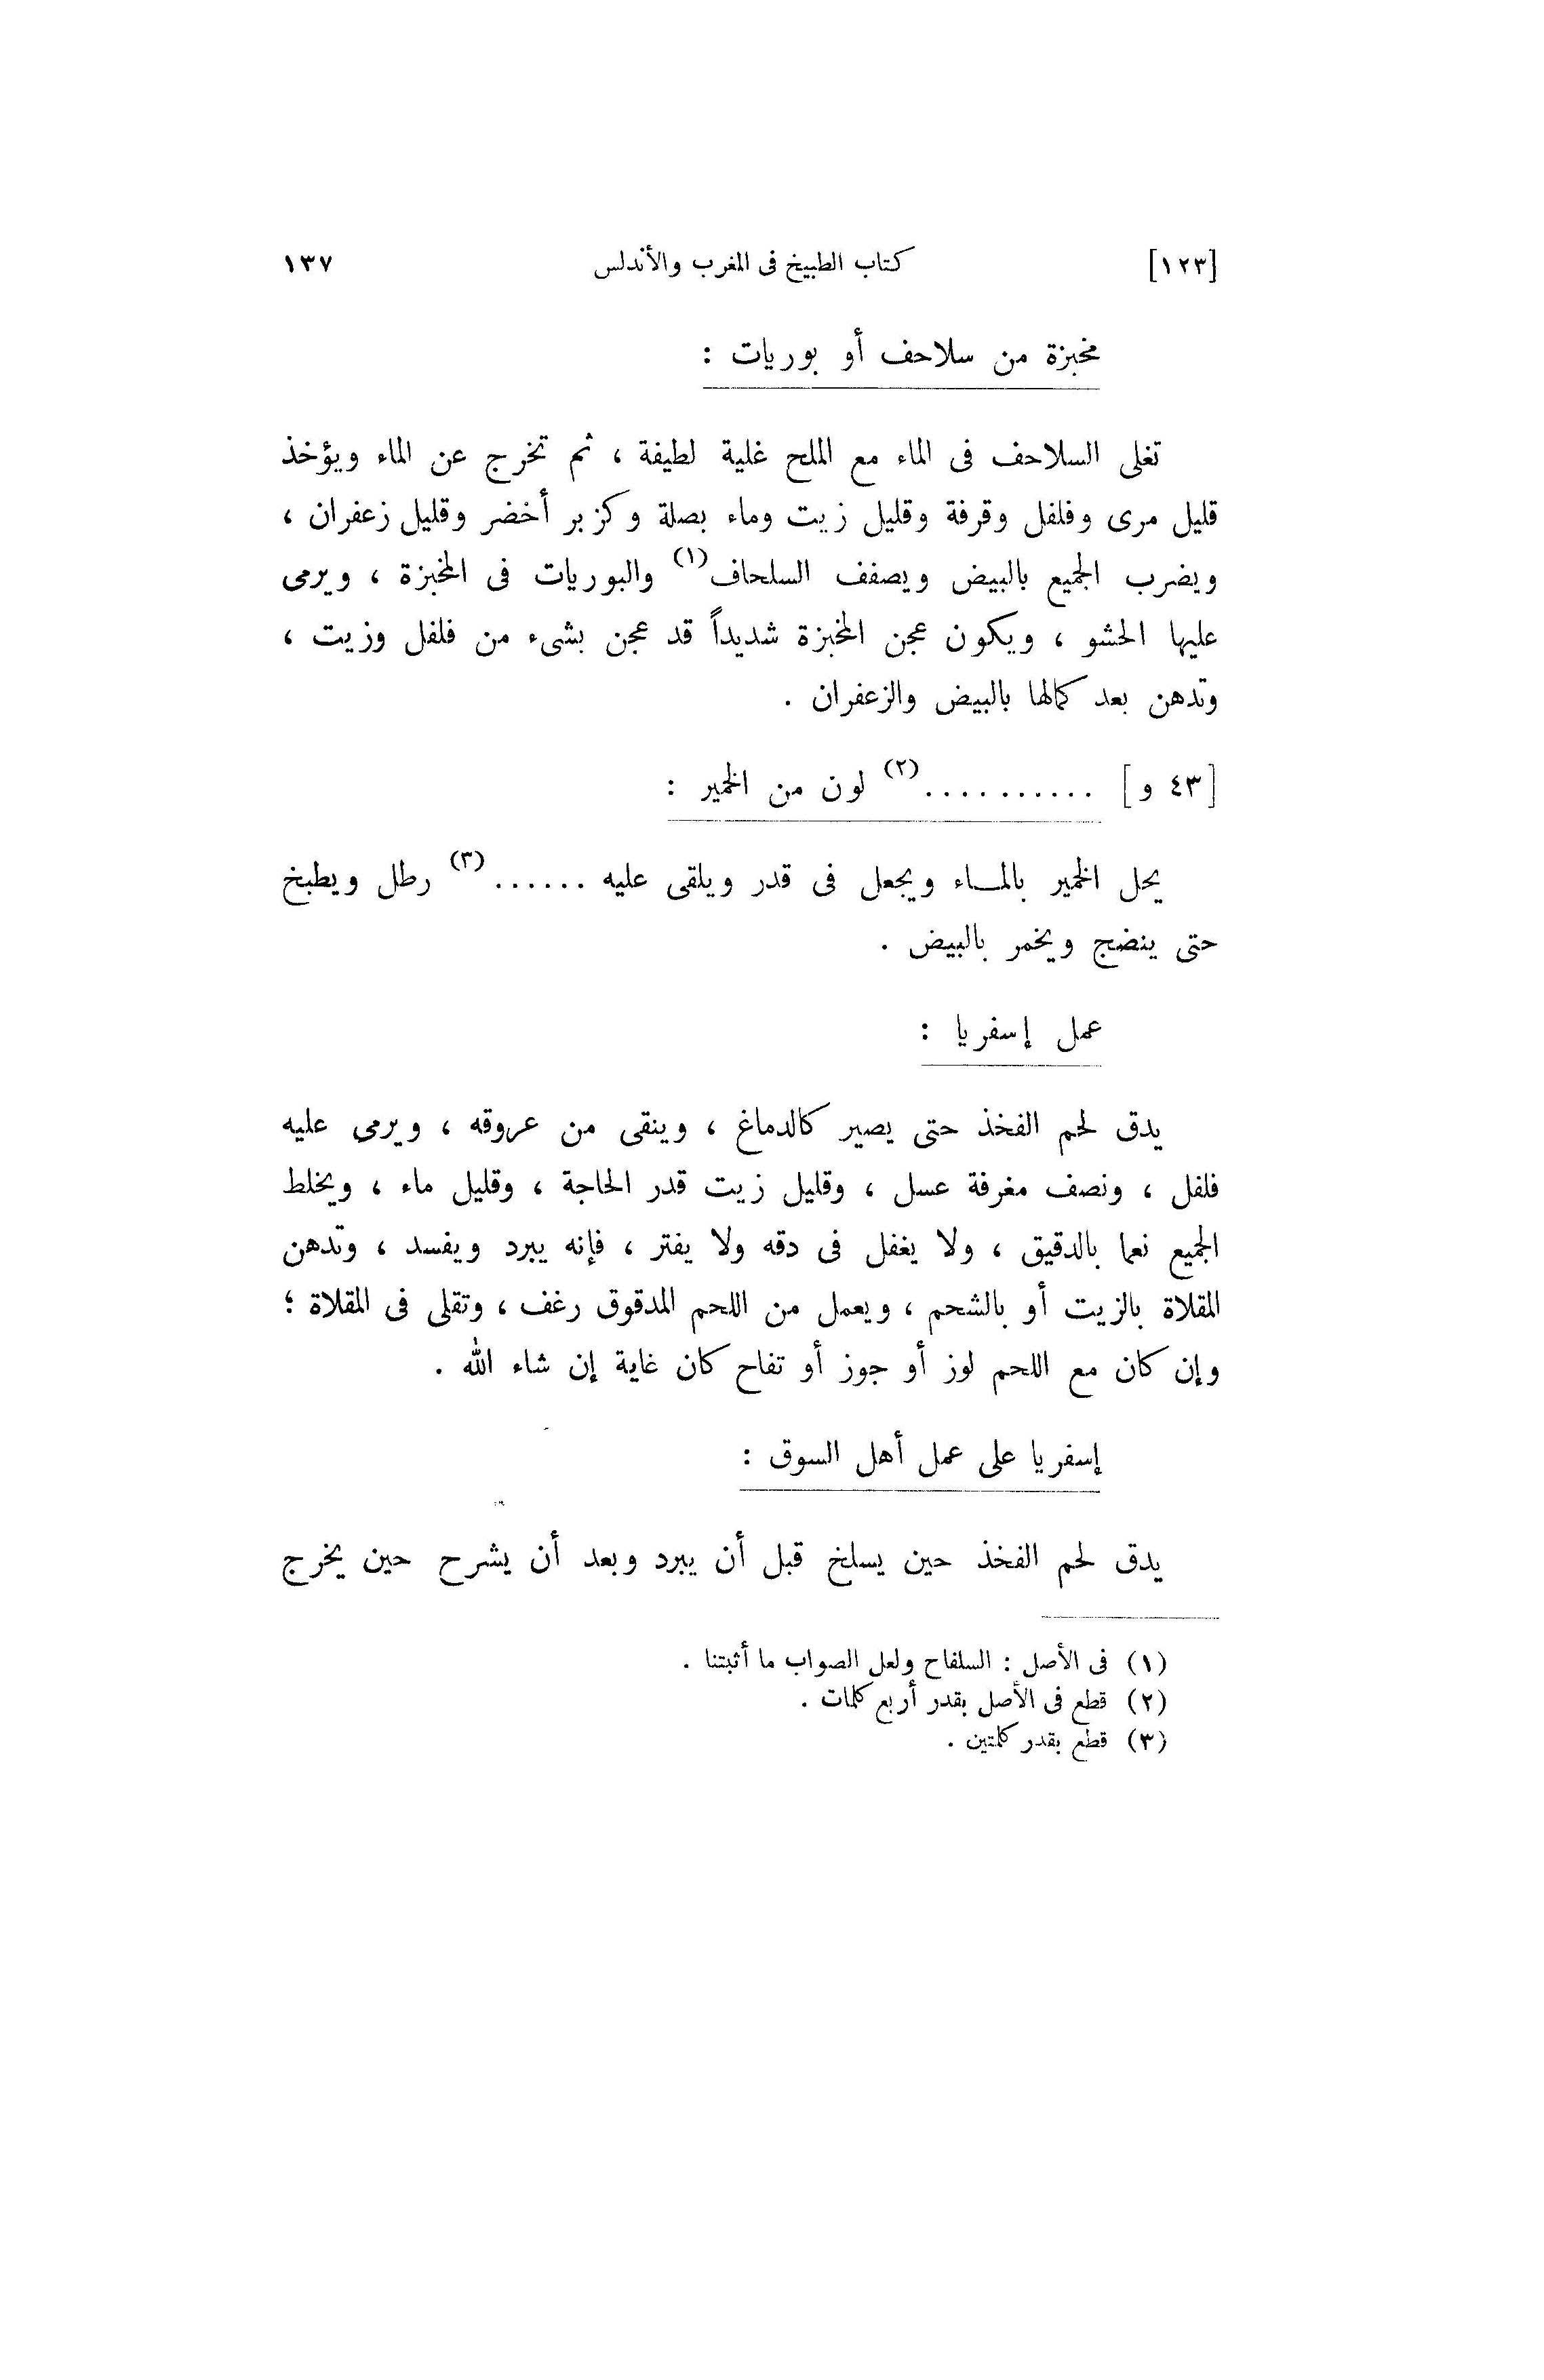 [١٢٣] كتاب الطبيخ فى المغرب والأندلس ١٣٧
مخبزة من سلاحف أو بوريات :
تغلى السلاحف فى الماء مع الملح غلية لطيفة ، ثم تخرج عن الماء ويؤخذ
قليل مرى وفلفل وقرفة وقليل زيت وماء بصلة وكزبر أخضر وقليل زعفران ،
ويضرب الجميع بالبيض ويصفف السلحاف(١) والبوريات فى المخبزة ، ويرمى
عليها الحشو ، ويكون عجن المخبزة شديداً قد عجن بشىء من فلفل وزيت ،
وتدهن بعد كمالها بالبيض والزعفران .
[٤٣ و] ..........(٢) لون من الخمير :
يحل الخمير بالمـاء ويجعل فى قدر ويلقى عليه ......(٣) رطل ويطبخ
حتى ينضج ويخمر بالبيض .
عمل إسفريا :
يدق لحم الفخذ حتى يصير كالدماغ ، وينقى من عروقه ، ويرمى عليه
فلفل ، ونصف مغرفة عسل ، وقليل زيت قدر الحاجة ، وقليل ماء ، ويخلط
الجميع نعما بالدقيق ، ولا يغفل فى دقه ولا يفتر ، فإنه يبرد ويفسد ، وتدهن
المقلاة بالزيت أو بالشحم ، ويعمل من اللحم المدقوق رغف ، وتقلى فى المقلاة ؛
وإن كان مع اللحم لوز أو جوز أو تفاح كان غاية إن شاء الله .
إسفريا على عمل أهل السوق :
يدق لحم الفخذ حين يسلخ قبل أن يبرد وبعد أن يشرح حين يخرج
(١) فى الأصل : السلفاح ولعل الصواب ما أثبتنا .
(٢) قطع فى الأصل بقدر أربع كلمات .
(٣) قطع بقدر كلمتين .